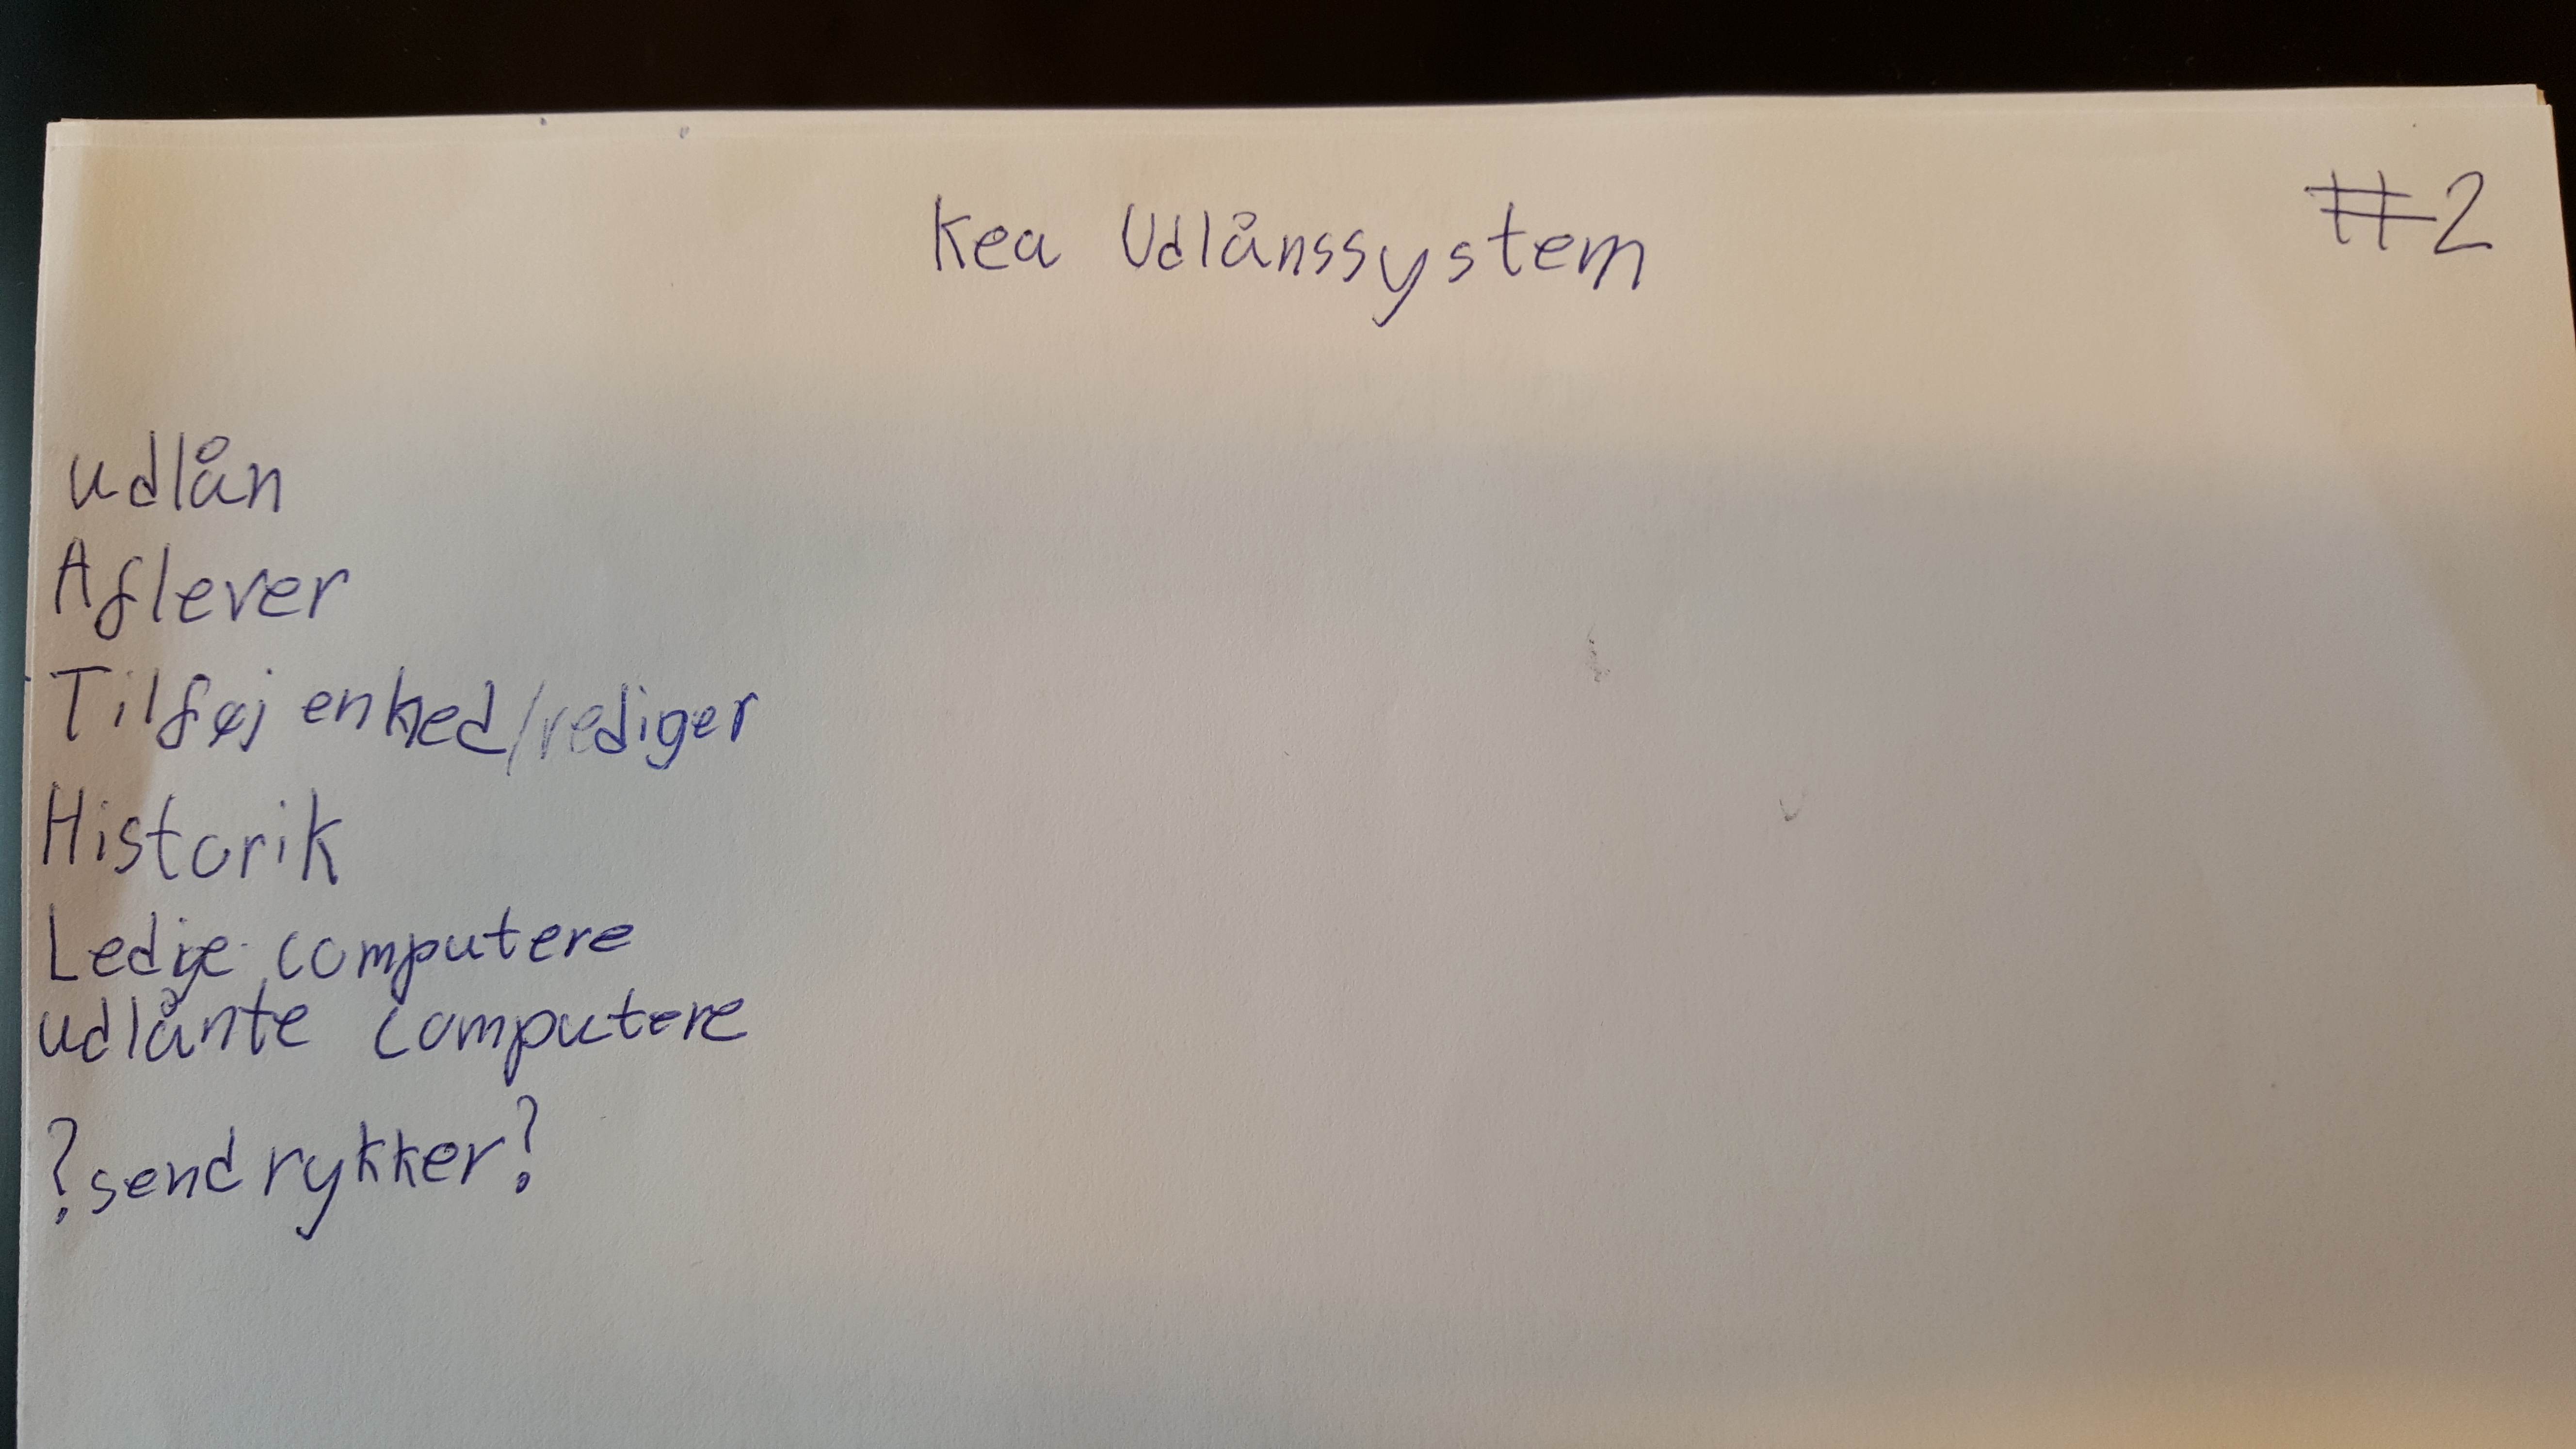 Kea Udlånssystem
#2
udlån
Aflever
Tilføj enhed/rediger
Historik
Ledige computere
udlånte computere
?send rykker?